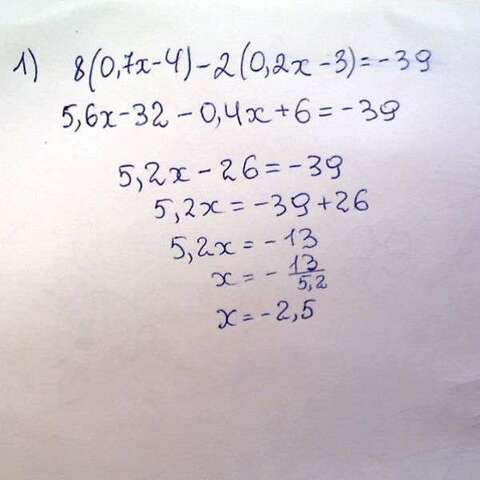 1) 8(0,7x-4)-2(0,2x-3)=-39
5,6x-32-0,4x+6=-39
5,2x-26=-39
5,2x=-39+26
5,2x=-13
x=-13/5,2
x=-2,5